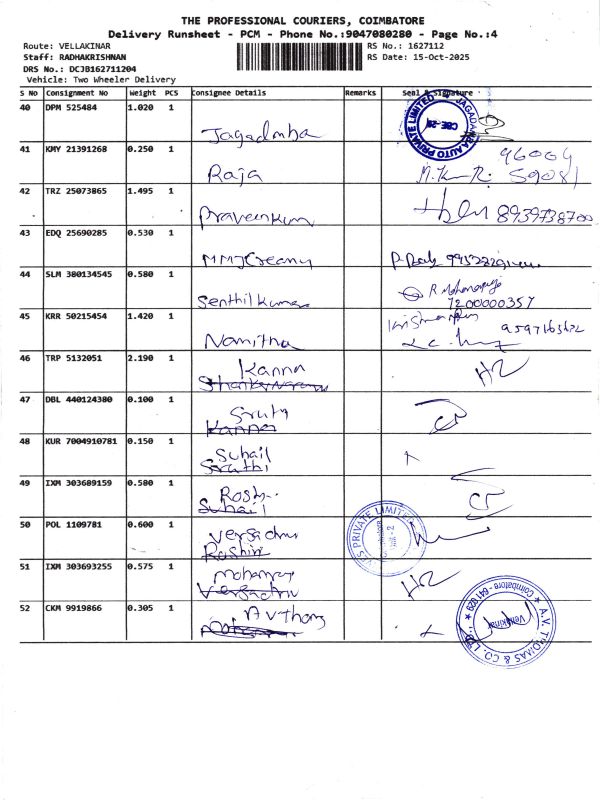 THE PROFESSIONAL COURIERS, COIMBATORE
Delivery Runsheet - PCM - Phone No.:9047080280 - Page No.:4
Route: VELLAKINAR
RS No.: 1627112
Staff: RADHAKRISHNAN
RS Date: 15-Oct-2025
DRS No.: DCJB162711204
Vehicle: Two Wheeler Delivery
S No Consignment No Weight PCS Consignee Details Remarks Seal & Signature
40 DPM 525484 1.020 1
Jagadmba
JAGADAMBA AUTO PRIVATE LIMITED
41 KMY 21391268 0.250 1
Raja
96009
59081
42 TRZ 25073865 1.495 1
Praveenkum
8939738700
43 EDQ 25690285 0.530 1
44 SLM 380134545 0.580 1
Senthil kumar
7200000357
45 KRR 50215454 1.420 1
Namitha
46 TRP 5132051 2.190 1
Kanna
47 DBL 440124380 0.100 1
Kanna
48 KUR 7004910781 0.150 1
Suhail
Sarathi
49 IXM 303689159 0.580 1
Suhail
50 POL 1109781 0.600 1
PRIVATE LIMITED
Roshini
51 IXM 303693255 0.575 1
52 CKM 9919866 0.305 1
A V Thomas
A.V. THOMAS & CO. LTD.
Coimbatore - 641 029
Vellakinar